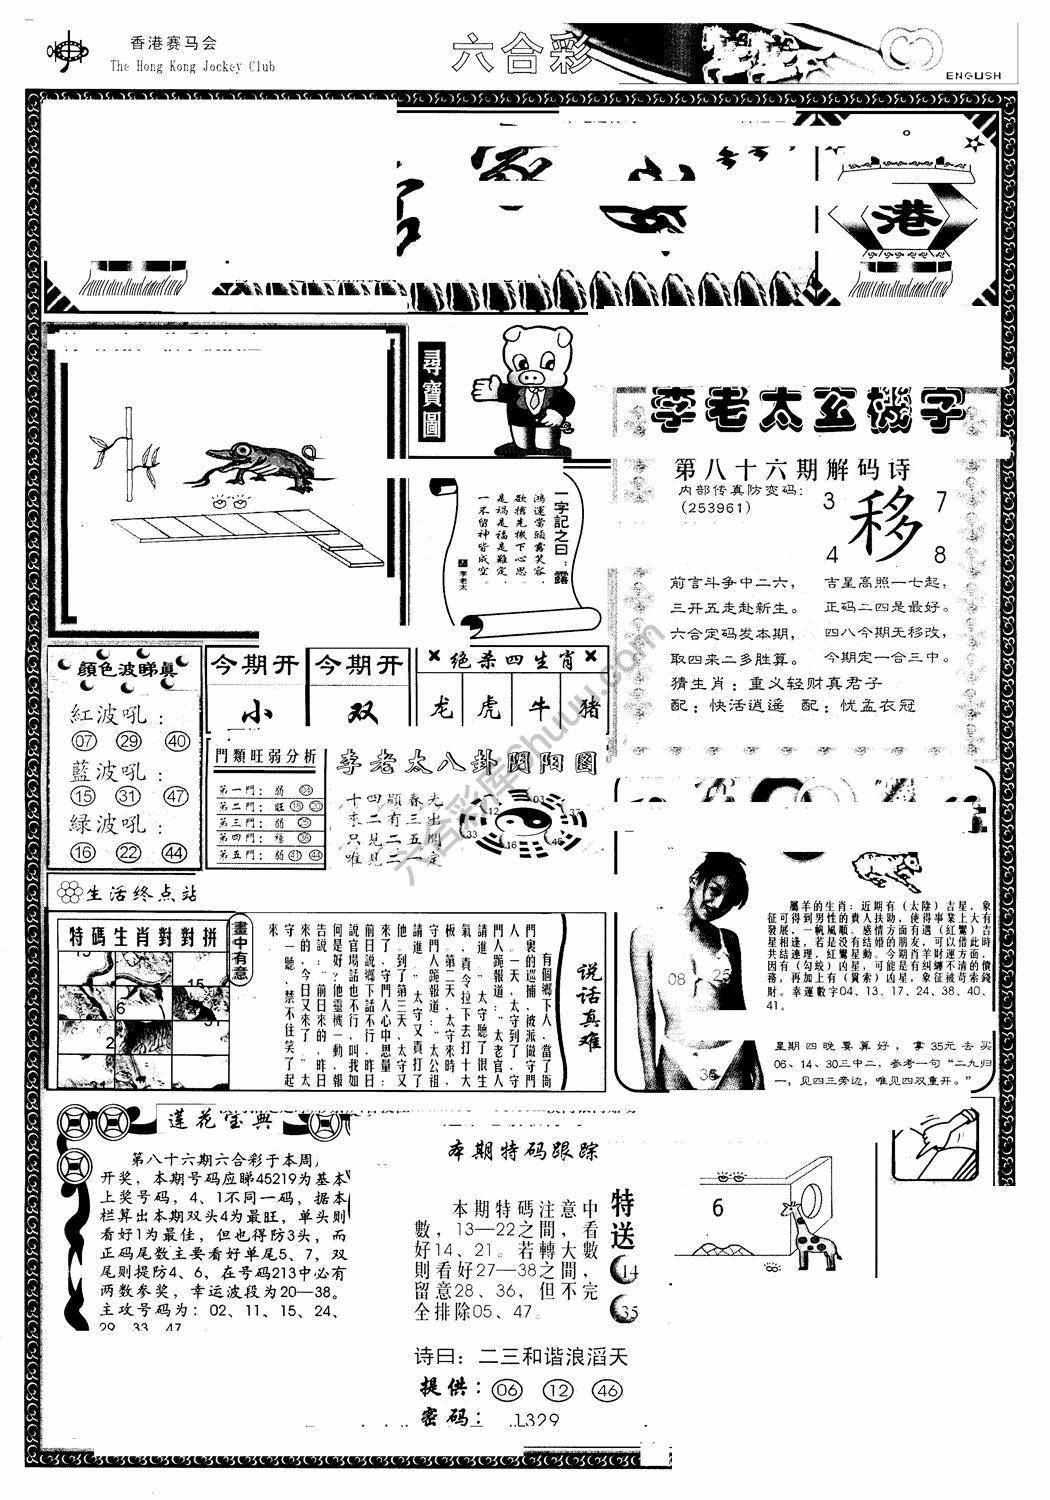 香港赛马会
The Hong Kong Jockey Club
六合彩
ENGLISH
港
尋寶圖
一字記之曰：露
鴻運當頭露笑容，
欲擒先機下心思，
是禍是福是難定，
一不留神皆成空。
李老太
李老太玄機字
第八十六期解码诗
内部传真防变码：
(253961)
3 7
移
4 8
前言斗争中二六，
三开五走赴新生。
六合定码发本期，
取四来二多胜算。
吉星高照一七起，
正码二四是最好。
四八今期无移改，
今期定一合三中。
猜生肖：重义轻财真君子
配：快活逍遥 配：忧孟衣冠
顏色波睇真
紅波吼：
07 29 40
藍波吼：
15 31 47
綠波吼：
16 22 44
今期开
小
今期开
双
绝杀四生肖
龙 虎 牛 猪
門類旺弱分析
第一門：弱 04
第二門：旺 18 20
第三門：弱 25
第四門：穩 36
第五門：弱 41 44
李老太八卦阴阳图
十四顯春光
未二有三出
只見二五開
唯見二一定
03
12
37
33
16
46
生活终点站
特碼生肖對對拼
畫中有意
15
6
2
说话真难
有個鄉下人，當了衙
門裏的巡捕，被派做守門
人。一天，太守到了，守
門人跪報道：“太老官人
請進。”太守聽了很生
氣，責令拉下去打十大
板。第二天，太守來時，
守門人跪報道：“太公祖
請進。”太守又責打了
他。到了第三天，太守又
來了，守門人心中思量：
前日説鄉下話不行，昨日
説官場話也不行，叫我如
何是好？他靈機一動，報
告説：“前日來的，昨日
來的，今日又來了。”太
守一聽，禁不住笑了起
來
08 25
36
屬羊的生肖：近期有（太陰）吉星，象
征可得到男性的貴人扶助，使得事業上大有
發展，一帆風順。感情方面有遇（紅鸞）吉
星相逢，若是没有結婚的朋友，可以借此時
共結連理，紅鸞星動。今期肖羊財運方面，
因有（勾絞）凶星，可能是有糾纏不清的債
務，再加上有（貫索）凶星，象征被苛索錢
財。幸運數字04、13、17、24、38、40、
41。
星期四晚要算好，拿35元去买
06、14、30三中二，参考一句“二九归
一，见四三旁边，唯见四双重开。”
莲花宝典
第八十六期六合彩于本周
开奖，本期号码应睇45219为基本
上奖号码，4、1不同一码，据本
栏算出本期双头4为最旺，单头则
看好1为最佳，但也得防3头，而
正码尾数主要看好单尾5、7，双
尾则提防4、6，在号码213中必有
两数参奖，幸运波段为20—38。
主攻号码为：02、11、15、24、
29、33、47
本期特码跟踪
本期特碼注意中
數，13—22之間，看
好14、21。若轉大數
則看好27—38之間，
留意28、36，但不完
全排除05、47。
特送
14
35
诗曰：二三和谐浪滔天
提供：06 12 46
密码：1329
6
六合彩库 Shuuu.com